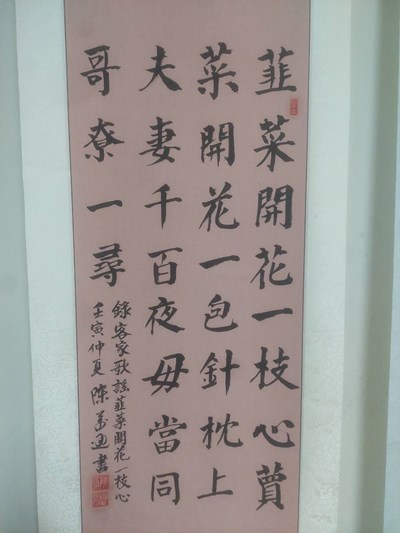 韮菜開花一枝心蕒
菜開花一包針枕上
夫妻千百夜毋當同
哥尞一尋
錄客家歌謠韮菜開花一枝心
壬寅仲夏 陳書